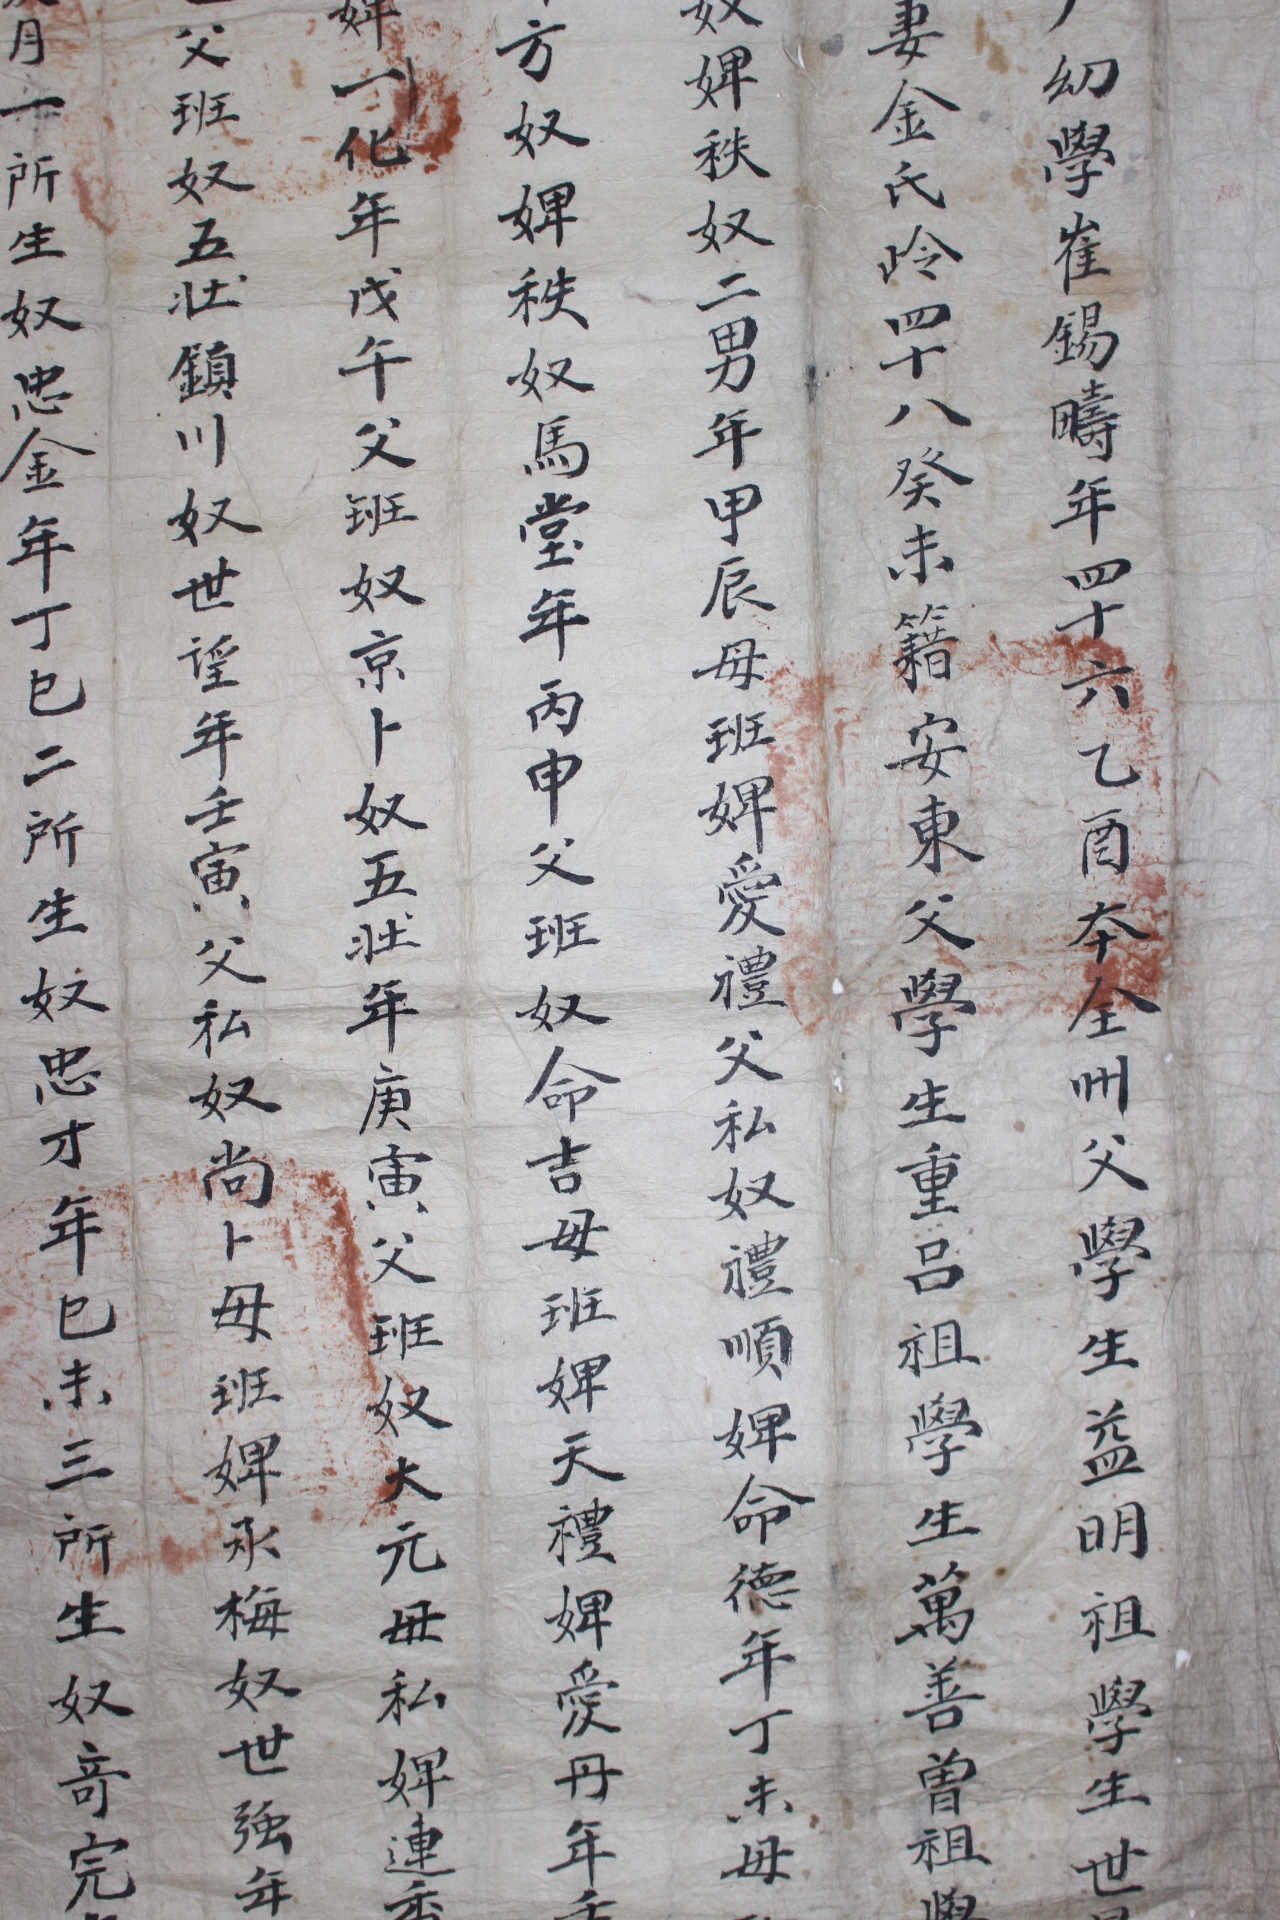 幼學崔錫疇年四十六乙酉本全州父學生益明祖學生世
妻金氏齡四十八癸未籍安東父學生重呂祖學生萬善曾祖學
奴婢秩奴二男年甲辰母班婢愛禮父私奴禮順婢命德年丁未母
方奴婢秩奴馬堂年丙申父班奴命吉母班婢天禮婢愛丹年壬
婢一化年戊午父班奴京卜奴五壯年庚寅父班奴大元母私婢連香
父班奴五壯鎭川奴世望年壬寅父私奴尚卜母班婢承梅奴世強年
月一所生奴忠金年丁巳二所生奴忠才年己未三所生奴奇完